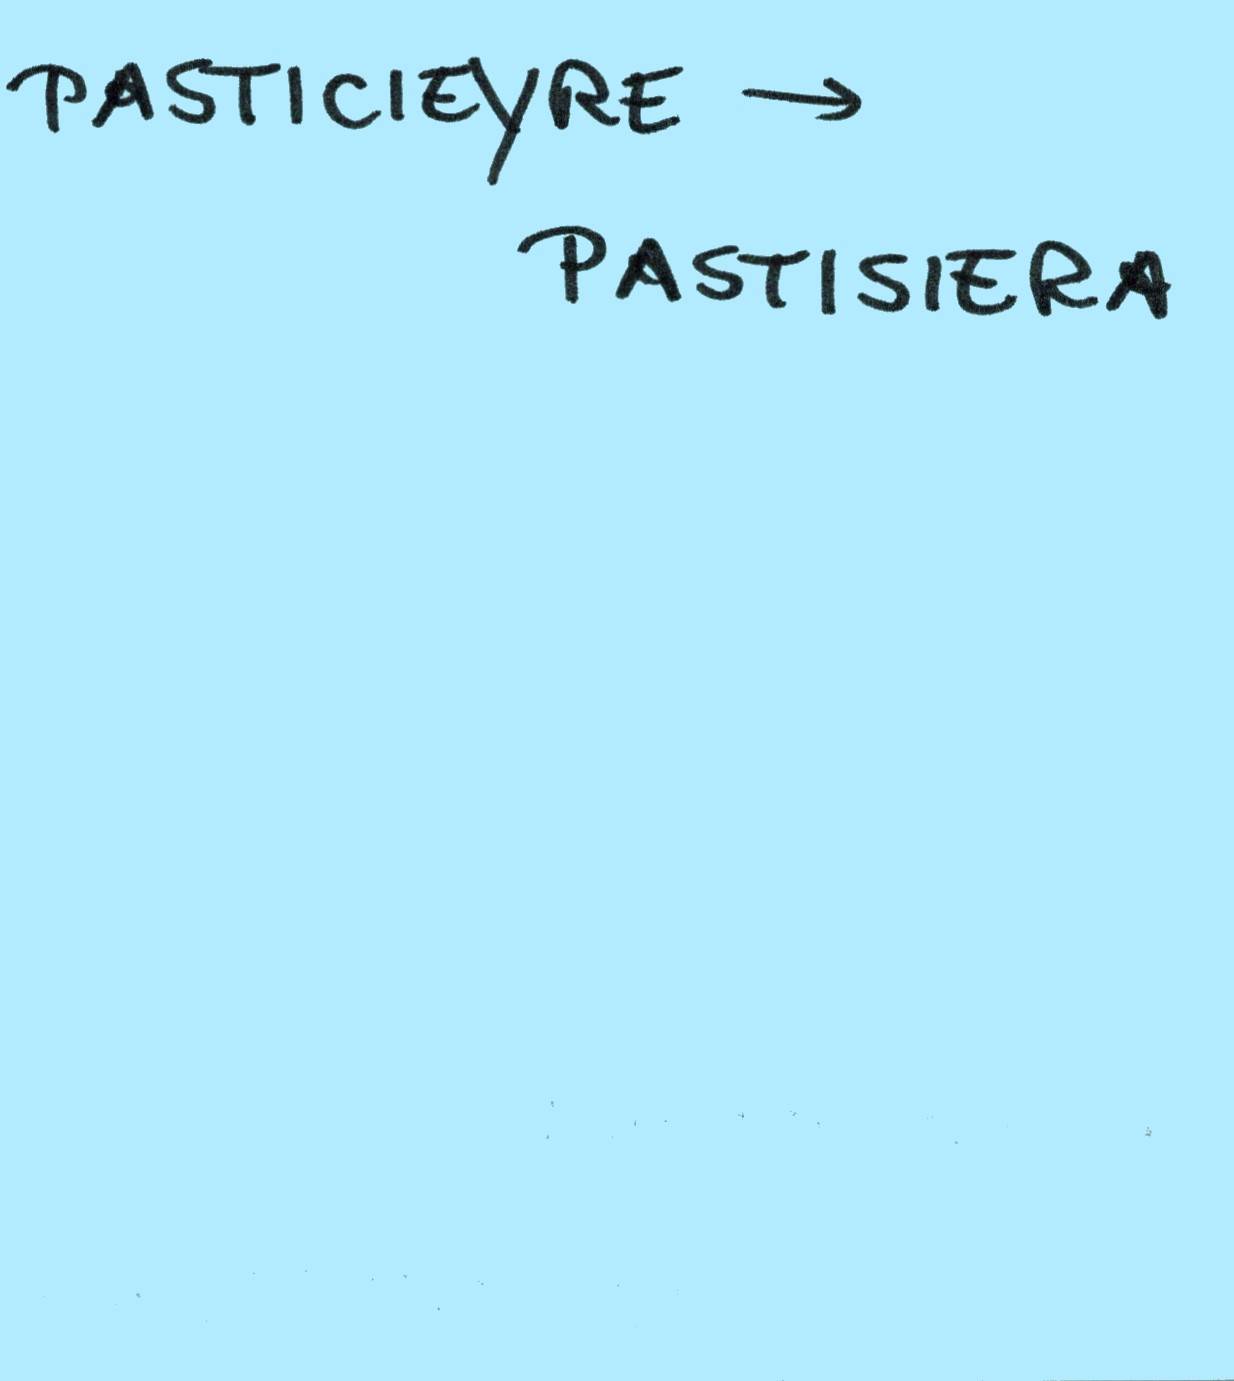 PASTICIEYRE →
PASTISIERA